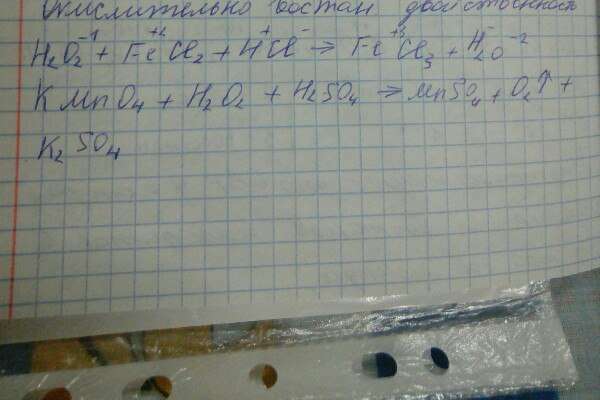 Окислительно востан двойственная
H₂O₂⁻¹ + Fe⁺²Cl₂ + H⁺Cl⁻ → Fe⁺³Cl₃ + H₂O⁻²
KMnO₄ + H₂O₂ + H₂SO₄ → MnSO₄ + O₂↑ +
K₂SO₄